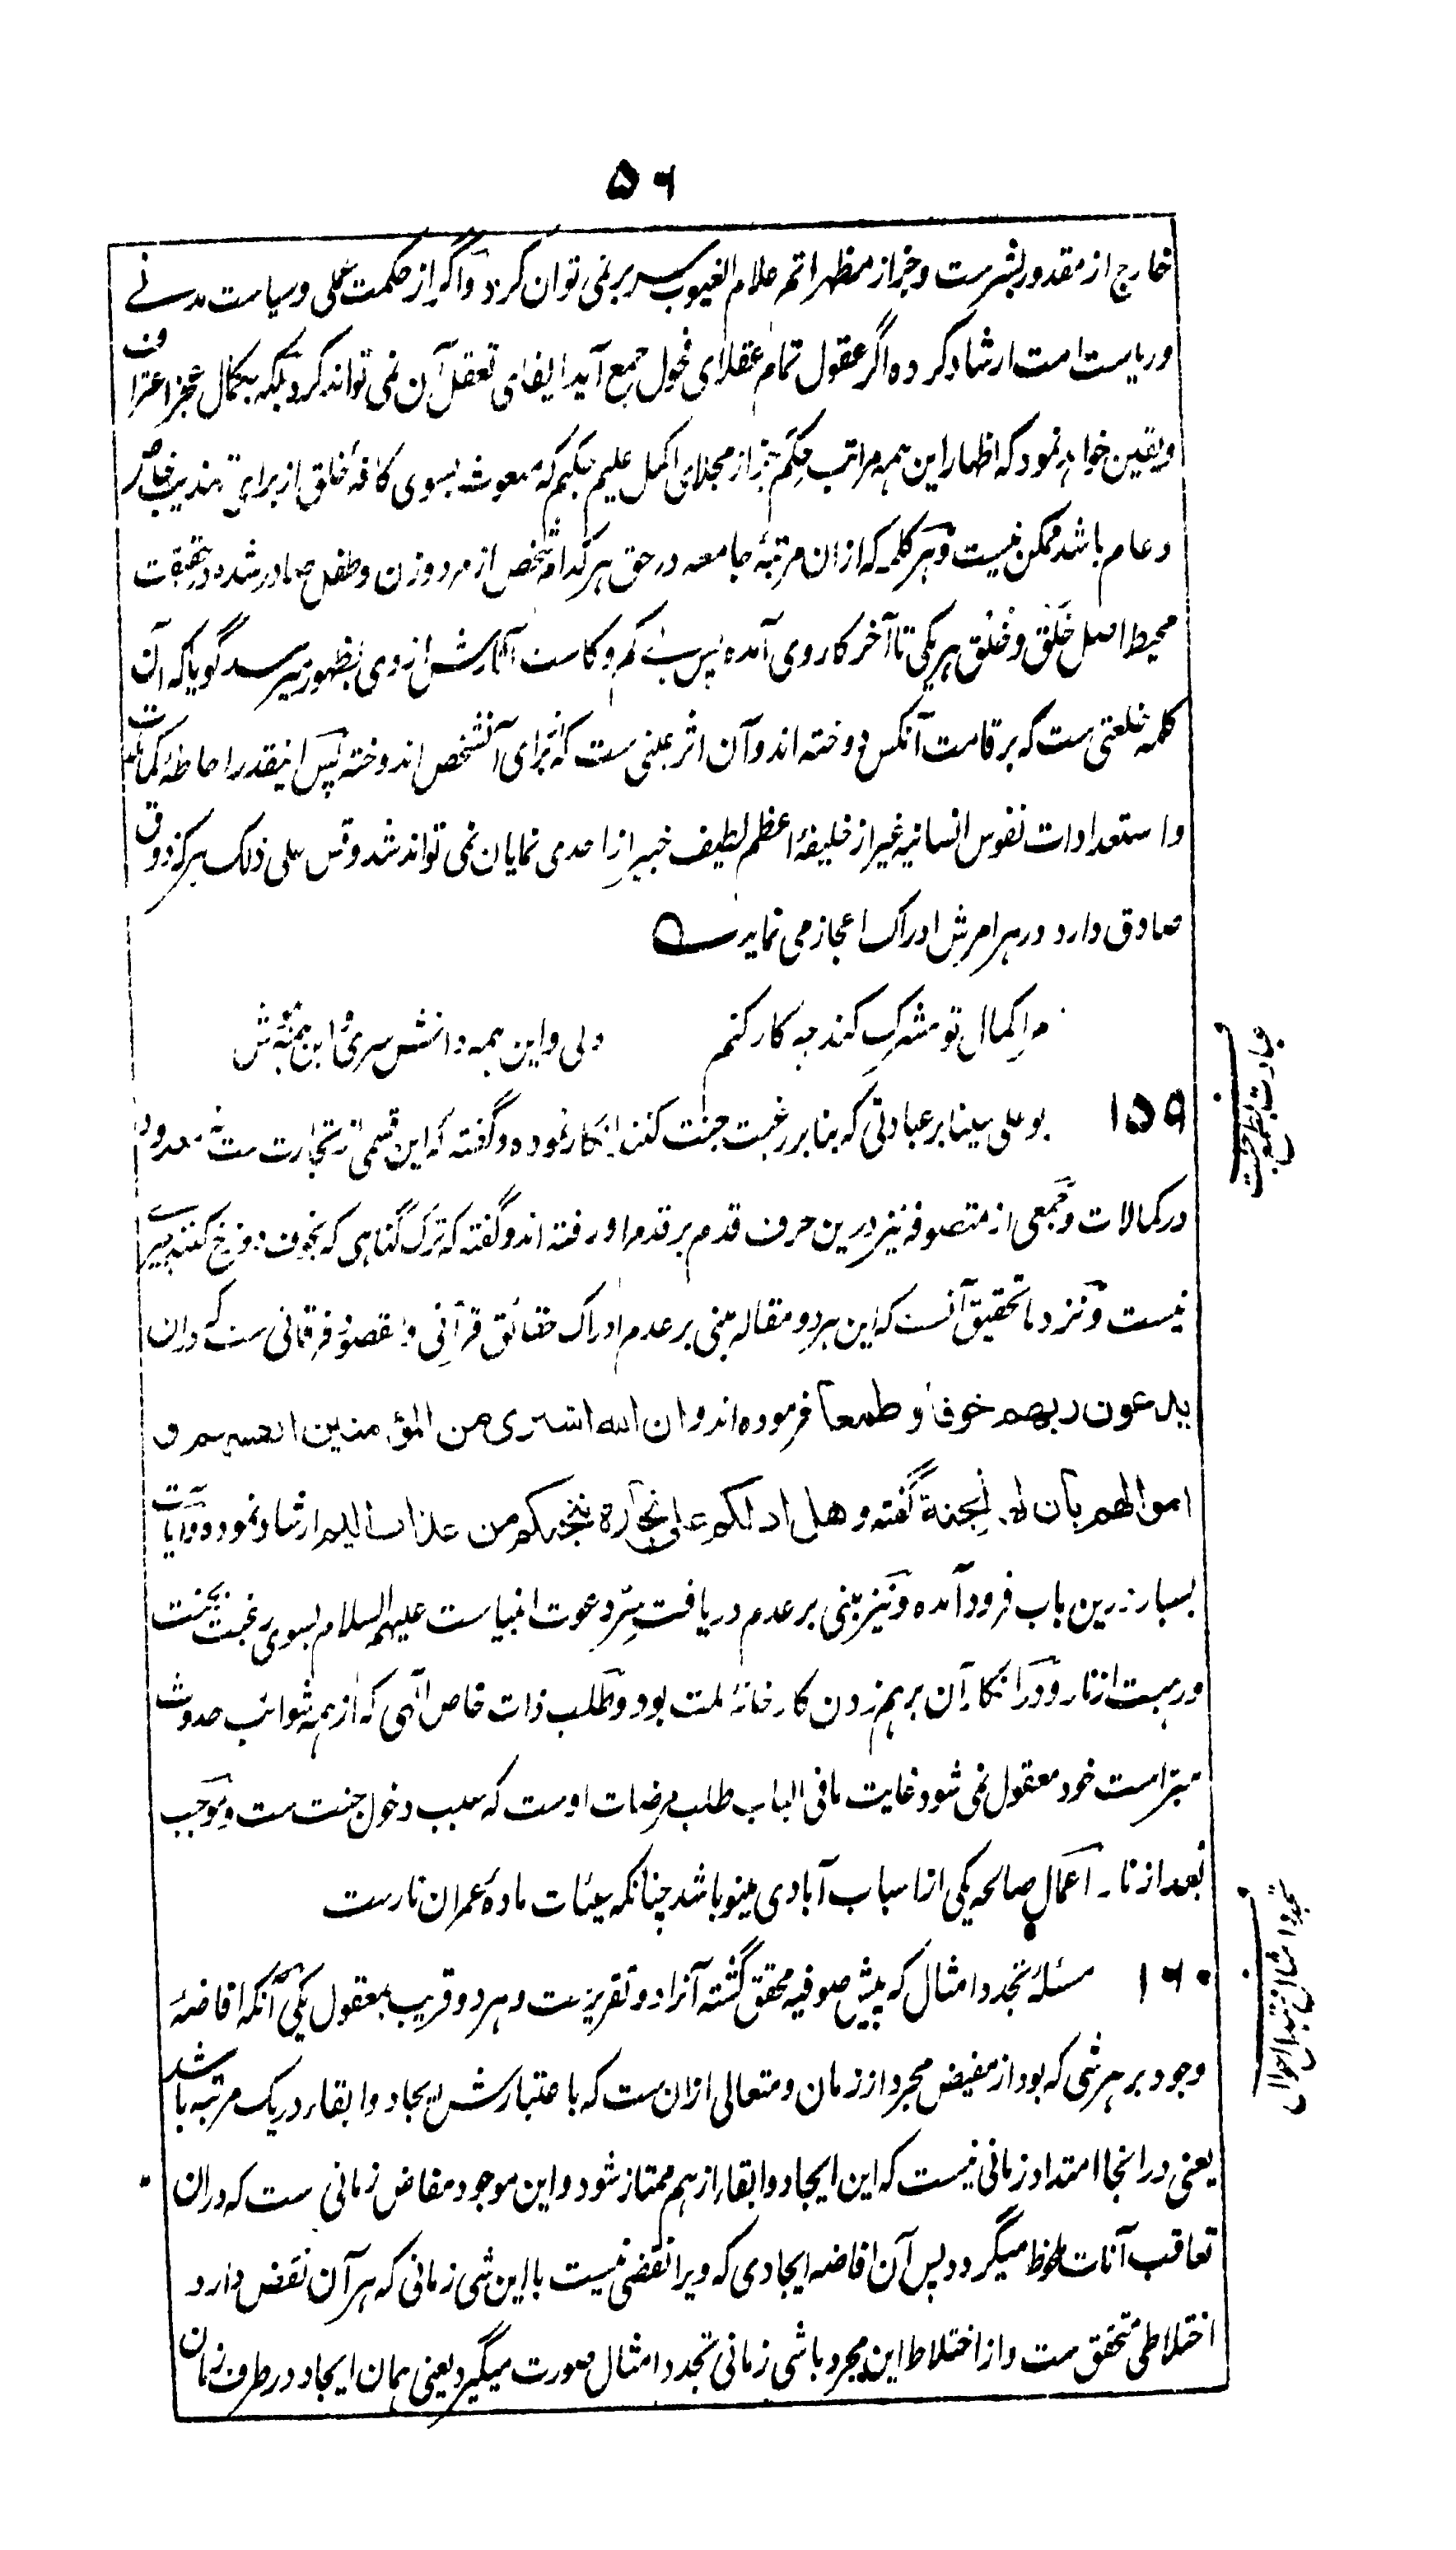 ۵۶
خارج از مقدور بشرست و جز از مظهر اتم علام الغیوب سر بر نمی توان کرد و اگر از حکمت عملی و سیاست مدنے
و ریاست امت ارشاد کرده اگر عقول تمام عقلای فحول جمع آید ایفای تعقل آن نمی تواند کرد بلکه بکمال عجز اعتراف
و یقین خواهد نمود که اظهار این همه مراتب حِکَم جز از مجلای اکمل علیم حکیم که مبعوث بسوی کافهٔ خلق از برای تهذیب خاص
و عام باشد ممکن نیست و هر کلمه که ازان مرتبهٔ جامعه در حق هر کدام شخص از مرد و زن و طفل صادر شده در حقیقت
محیط اصل خَلق و خُلق هر یکی تا آخر کار وی آمده پس بے کم و کاست آثارش از وی بظهور میرسد گویا که آن
کلمه خلعتی ست که بر قامت آنکس دوخته اند و آن اثر عینی ست که برای آنشخص اندوخته پس اینقدر احاطهٔ کمالات
و استعدادات نفوس انسانیه غیر از خلیفهٔ اعظم لطیف خبیر از احدی نمایان نمی تواند شد و قس علی ذلک هر که ذوق
صادق دارد در هر امرش ادراک اعجاز می نماید
مرا کمال تو مشرک کند چه کار کنم دلی و این همه دانش سری و این همه
۱۵۹ بو علی سینا بر عبادتی که بنا بر رغبت جنت کنند انکار نموده و گفته که این قسمی از تجارت ست نه معدود
در کمالات و جمعی از متصوفه نیز درین حرف قدم بر قدم او رفته اند و گفته که ترک گناهی که بخوف دوزخ کنند چیزے
نیست و نزد ما تحقیق آنست که این هر دو مقاله مبنی بر عدم ادراک حقائق قرآنی و مقصود فرقانی ست که دران
یدعون ربهم خوفا و طمعا فرموده اند و ان الله اشتری من المؤمنین انفسهم و
اموالهم بان لهم الجنة گفته و هل ادلکم علی تجارة تنجیکم من عذاب الیم ارشاد نموده و آیات
بسیار درین باب فرود آمده و نیز مبنی بر عدم دریافت سرّ دعوت انبیاست علیهم السلام بسوی رغبت بجنت
و رهبت از نار و در انکار آن برهم زدن کارخانهٔ ملت بود و طلب ذات خاص الٰهی که از همه شوائب حدوث
مبراست خود معقول نمی شود غایت ما فی الباب طلب مرضات اوست که سبب دخول جنت ست و موجب
بُعد از نار اعمال صالحه یکی از اسباب آبادی مینو باشد چنانکه سیئات مادهٔ عمران نارست
۱۶۰ مسئلهٔ تجدد امثال که پیش صوفیه محقق گشته آنرا دو تقریرست و هر دو قریب بمعقول یکی آنکه افاضهٔ
وجود بر هر شی که بود از مفیض مجرد از زمان و متعالی ازان ست که باعتبارش ایجاد و ابقاء در یک مرتبه باشد
یعنی در انجا امتداد زمانی نیست که این ایجاد و ابقا از هم ممتاز شود و این موجود مفاض زمانی ست که دران
تعاقب آنات ملحوظ میگردد پس آن افاضه ایجادی که ویرا نقضی نیست با این شی زمانی که هر آن نقض دارد
اختلاطی متحقق ست و از اختلاط این مجرد باشی زمانی تجدد امثال صورت میگیرد یعنی همان ایجاد در طرف زمان